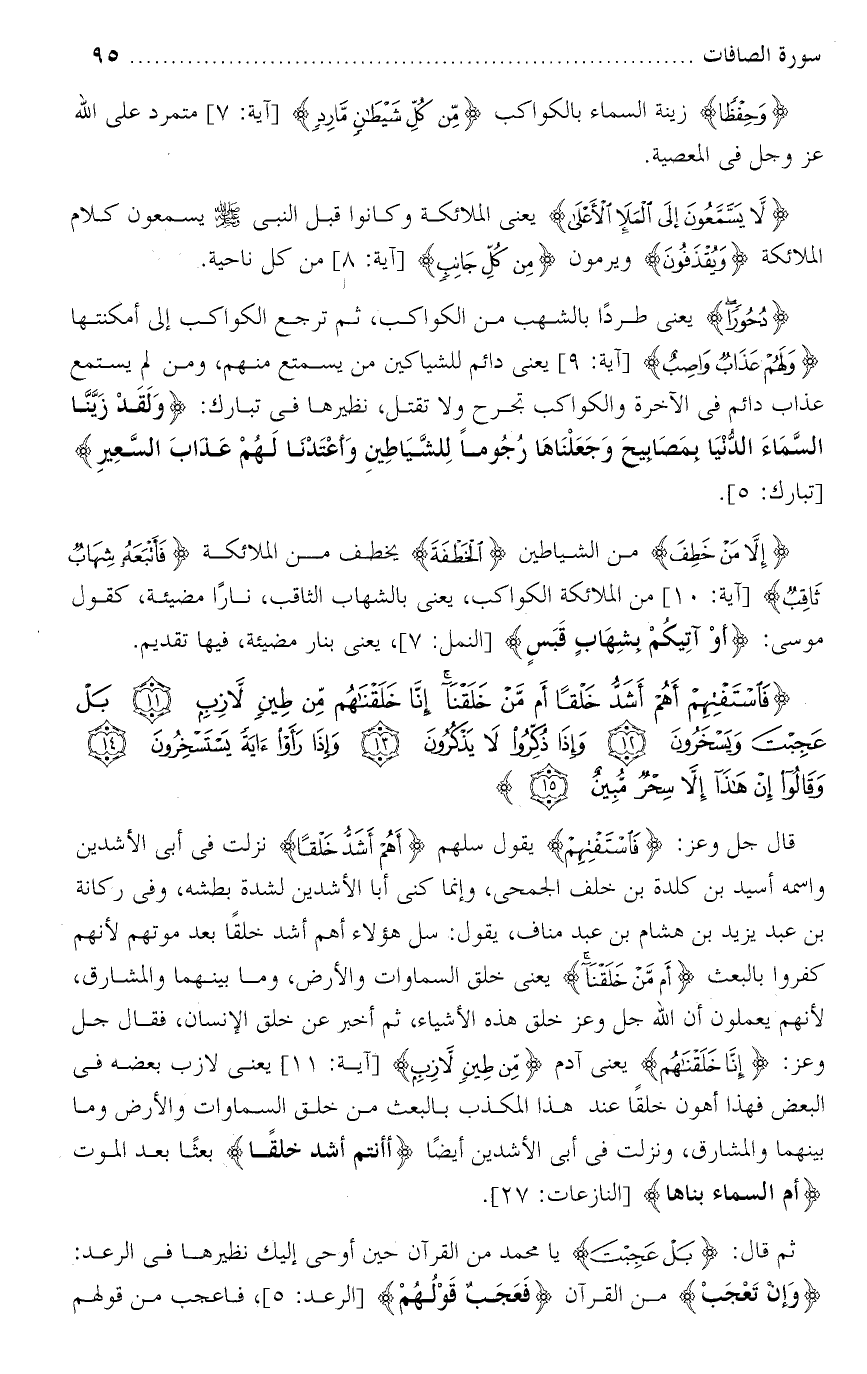 سورة الصافات ............................................................ ٩٥
﴿وَحِفْظًا﴾ زينة السماء بالكواكب ﴿مِّن كُلِّ شَيْطَانٍ مَّارِدٍ﴾ [آية: ٧] متمرد على الله
عز وجل فى المعصية.
﴿لَّا يَسَّمَّعُونَ إِلَى ٱلْمَلَإِ ٱلْأَعْلَىٰ﴾ يعنى الملائكة وكانوا قبل النبى ﷺ يسمعون كلام
الملائكة ﴿وَيُقْذَفُونَ﴾ ويرمون ﴿مِن كُلِّ جَانِبٍ﴾ [آية: ٨] من كل ناحية.
﴿دُحُورًا﴾ يعنى طردًا بالشهب من الكواكب، ثم ترجع الكواكب إلى أمكنتها
﴿وَلَهُمْ عَذَابٌ وَاصِبٌ﴾ [آية: ٩] يعنى دائم للشياكين من يسمتع منهم، ومن لم يستمع
عذاب دائم فى الآخرة والكواكب تجرح ولا تقتل، نظيرها فى تبارك: ﴿وَلَقَدْ زَيَّنَّا
السَّمَاءَ الدُّنْيَا بِمَصَابِيحَ وَجَعَلْنَاهَا رُجُوماً لِلشَّيَاطِينِ وَأَعْتَدْنَا لَهُمْ عَذَابَ السَّعِيرِ﴾
[تبارك: ٥].
﴿إِلَّا مَنْ خَطِفَ﴾ من الشياطين ﴿ٱلْخَطْفَةَ﴾ يخطف من الملائكة ﴿فَأَتْبَعَهُۥ شِهَابٌ
ثَاقِبٌ﴾ [آية: ١٠] من الملائكة الكواكب، يعنى بالشهاب الثاقب، نارًا مضيئة، كقول
موسى: ﴿أَوْ آتِيكُمْ بِشِهَابٍ قَبَسٍ﴾ [النمل: ٧]، يعنى بنار مضيئة، فيها تقديم.
﴿فَٱسْتَفْتِهِمْ أَهُمْ أَشَدُّ خَلْقًا أَم مَّنْ خَلَقْنَآ ۚ إِنَّا خَلَقْنَٰهُم مِّن طِينٍ لَّازِبٍ ١١ بَلْ
عَجِبْتَ وَيَسْخَرُونَ ١٢ وَإِذَا ذُكِّرُوا۟ لَا يَذْكُرُونَ ١٣ وَإِذَا رَأَوْا۟ ءَايَةً يَسْتَسْخِرُونَ ١٤
وَقَالُوٓا۟ إِنْ هَٰذَآ إِلَّا سِحْرٌ مُّبِينٌ ١٥ ﴾
قال جل وعز: ﴿فَٱسْتَفْتِهِمْ﴾ يقول سلهم ﴿أَهُمْ أَشَدُّ خَلْقًا﴾ نزلت فى أبى الأشدين
واسمه أسيد بن كلدة بن خلف الجمحى، وإنما كنى أبا الأشدين لشدة بطشه، وفى ركانة
بن عبد يزيد بن هشام بن عبد مناف، يقول: سل هؤلاء أهم أشد خلقًا بعد موتهم لأنهم
كفروا بالبعث ﴿أَم مَّنْ خَلَقْنَآ ۚ﴾ يعنى خلق السماوات والأرض، وما بينهما والمشارق،
لأنهم يعملون أن الله جل وعز خلق هذه الأشياء، ثم أخبر عن خلق الإنسان، فقال جل
وعز: ﴿إِنَّا خَلَقْنَٰهُم﴾ يعنى آدم ﴿مِّن طِينٍ لَّازِبٍ﴾ [آية: ١١] يعنى لازب بعضه فى
البعض فهذا أهون خلقًا عند هذا المكذب بالبعث من خلق السماوات والأرض وما
بينهما والمشارق، ونزلت فى أبى الأشدين أيضًا ﴿أأنتم أشد خلقًا﴾ بعثًا بعد الموت
﴿أم السماء بناها﴾ [النازعات: ٢٧].
ثم قال: ﴿بَلْ عَجِبْتَ﴾ يا محمد من القرآن حين أوحى إليك نظيرها فى الرعد:
﴿وَإِنْ تَعْجَبْ﴾ من القرآن ﴿فَعَجَبٌ قَوْلُهُمْ﴾ [الرعد: ٥]، فاعجب من قولهم